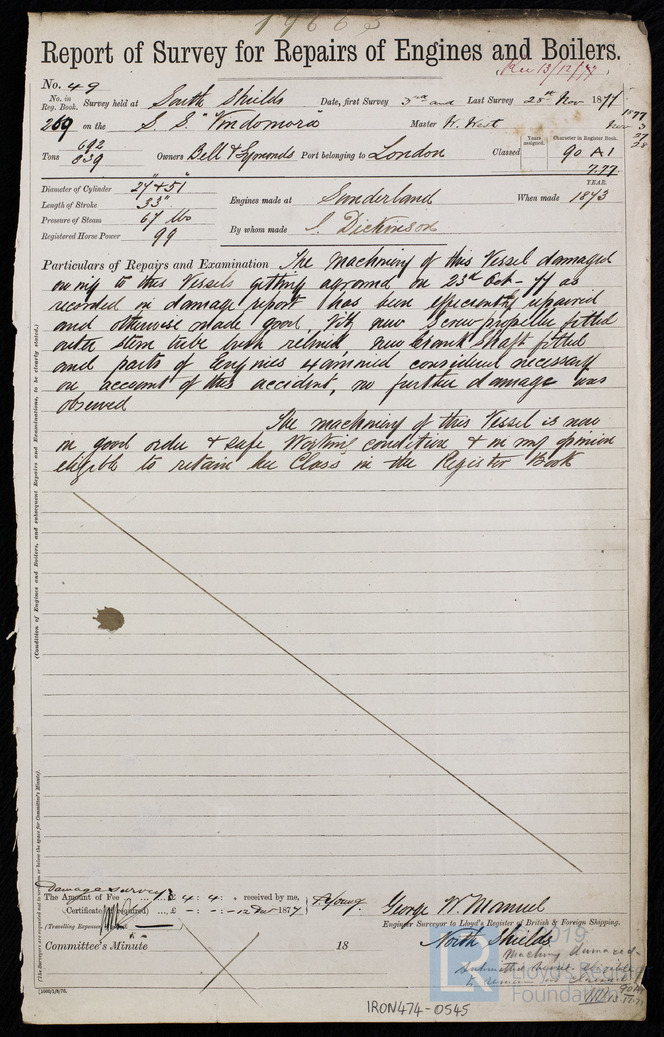 19663
Report of Survey for Repairs of Engines and Boilers.
Rec 13/12/77
No. 49
No. in Reg. Book. Survey held at South Shields Date, first Survey 3rd and Last Survey 28th Nov 1877
1877 Nov 3 27 28
269 on the S. S. "Vindomora" Master W. West
Tons 692 839 Owners Bell & Symonds Port belonging to London Classed
Years assigned. Character in Register Book. 90 A1 7.77
Diameter of Cylinder 27" & 51"
Length of Stroke 33"
Pressure of Steam 67 lbs
Registered Horse Power 99
Engines made at Sunderland When made YEAR. 1873
By whom made J. Dickinson
Particulars of Repairs and Examination The Machinery of this Vessel damaged
owing to this Vessels getting aground on 23rd Oct - 77 as
recorded in damage report has been efficiently repaired
and otherwise made good, Viz new Screw propeller fitted
outer stern tube bush relined new Crank Shaft fitted
and parts of Engines examined considered necessary
on account of this accident, no further damage was
observed
The machinery of this Vessel is now
in good order & safe Working condition & in my opinion
eligible to retain her Class in the Register Book
(Condition of Engines and Boilers, and subsequent Repairs and Examinations, to be clearly stated.)
(The Surveyors are requested not to write on or below the space for Committee's Minute).
Damage survey
The Amount of Fee £ 4 : 4 : received by me,
Certificate (if required) £ - : - : - 12 Dec 1877
(Travelling Expenses
George W. Manuel
Engineer Surveyor to Lloyd's Register of British & Foreign Shipping.
North Shields
Committee's Minute 18
Machy damaged
Submitted
to remain as classed
90 A1
[1000/1/8/76.
© 2019
LR
Lloyd's Register
Foundation
IRON474-0545